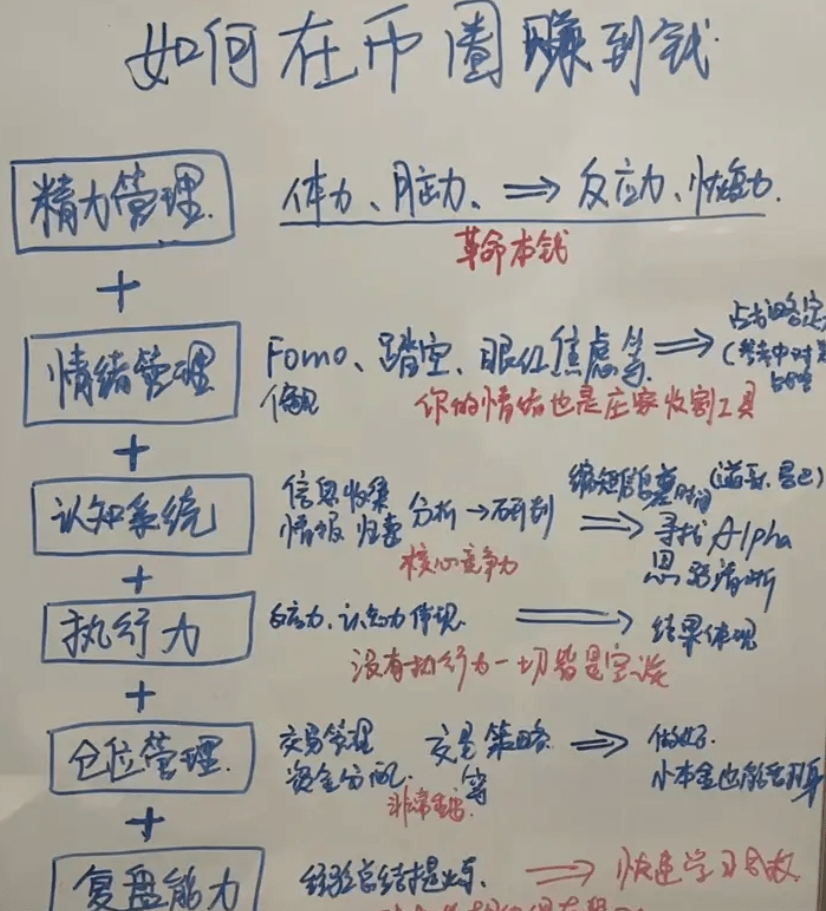 如何在币圈赚到钱
精力管理. 体力、脑力、⇒ 反应力、恢复力.
革命本钱
+
情绪管理 Fomo、踏空、眼红焦虑等. ⇒
偏见
你的情绪也是庄家收割工具
+
认知系统 信息收集 分析→研判 ⇒ 寻找Alpha
情报 归类
思路清晰
核心竞争力
+
执行力 反应力、认知力体现. ⇒ 结果体现
没有执行力一切皆是空谈
+
仓位管理. 交易管理 交易策略 ⇒ 做好.
资金分配. 等 小本金也能翻身
非常重要.
+
复盘能力 经验总结提炼. ⇒ 快速学习